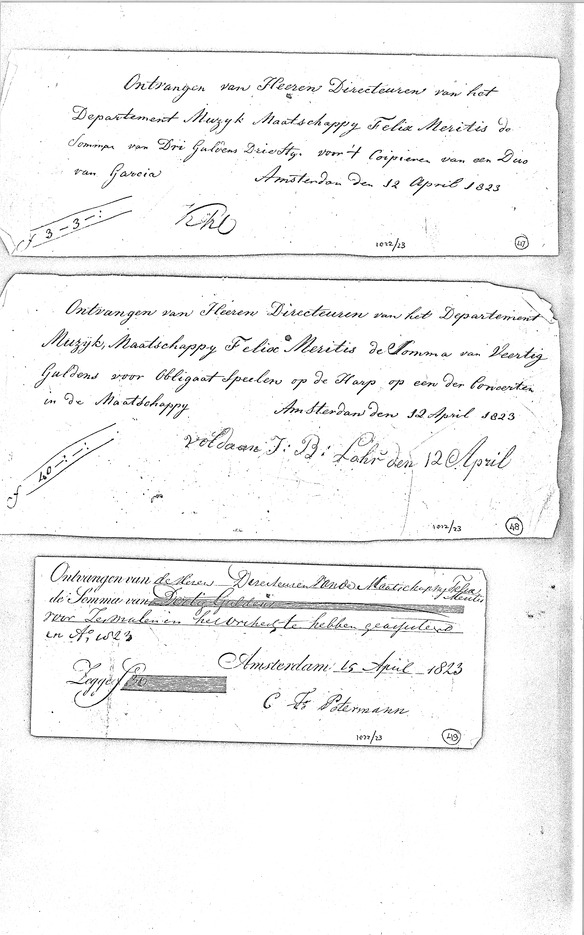 Ontvangen van Heeren Directeuren van het
Departement Muzyk Maatschappy Felix Meritis de
Somma van Dri Guldens Drie Sty. voor 't Coipieren van een Duo
van Garcia Amsterdam den 12 April 1823
f 3-3-:
1022/23
47
Ontvangen van Heeren Directeuren van het Departement
Muzyk, Maatschappy Felix Meritis de Somma van Veertig
Guldens voor Obligaat Speelen op de Harp op een der Concerten
in de Maatschappy Amsterdam den 12 April 1823
voldaan J: B: Lahr den 12 April
f 40-:-:
1022/23
48
Ontvangen van de Heren Directeuren van de Maatschappy Felix
Meritis
de Somma van Dertig Guldens
voor Zesmalen in het orchest te hebben geadsisteerd
in Ao. 1823
Amsterdam 15 April 1823
Zegge f 30
C F Potermann
1022/23
49